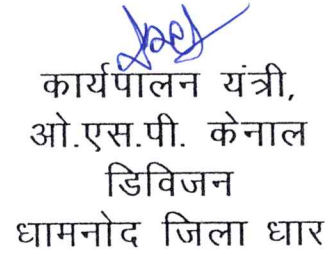 कार्यपालन यंत्री,
ओ.एस.पी. केनाल
डिविजन
धामनोद जिला धार